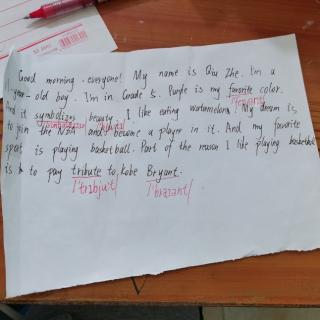 Good morning, everyone! My name is Qiu Zhe. I'm a
11-year-old boy. I'm in Grade 5. Purple is my favorite color.
And it symbolizes beauty. I like eating watermelons. My dream is
to join the NBA and become a player in it. And my favorite
sport is playing basketball. Part of the reason I like playing basketball
is to pay tribute to Kobe Bryant.
/'trɪbjut/ /'braɪənt/